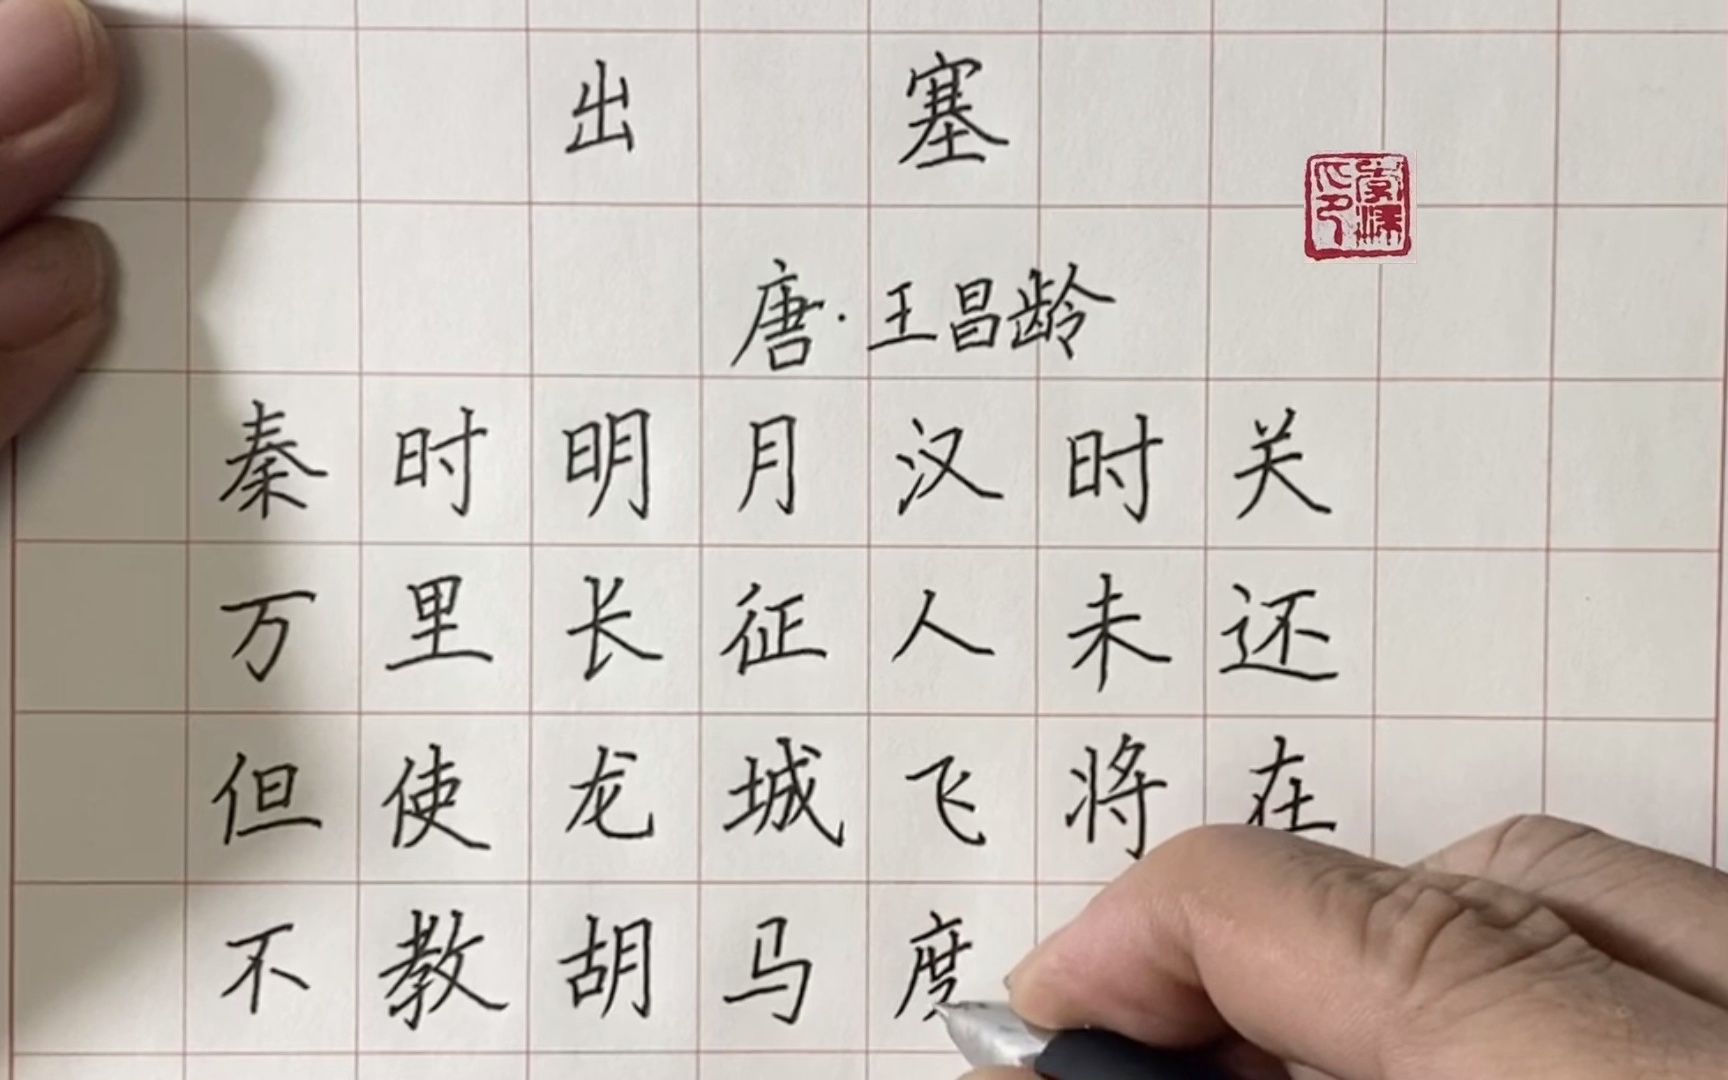 出塞
唐·王昌龄
秦时明月汉时关
万里长征人未还
但使龙城飞将在
不教胡马度